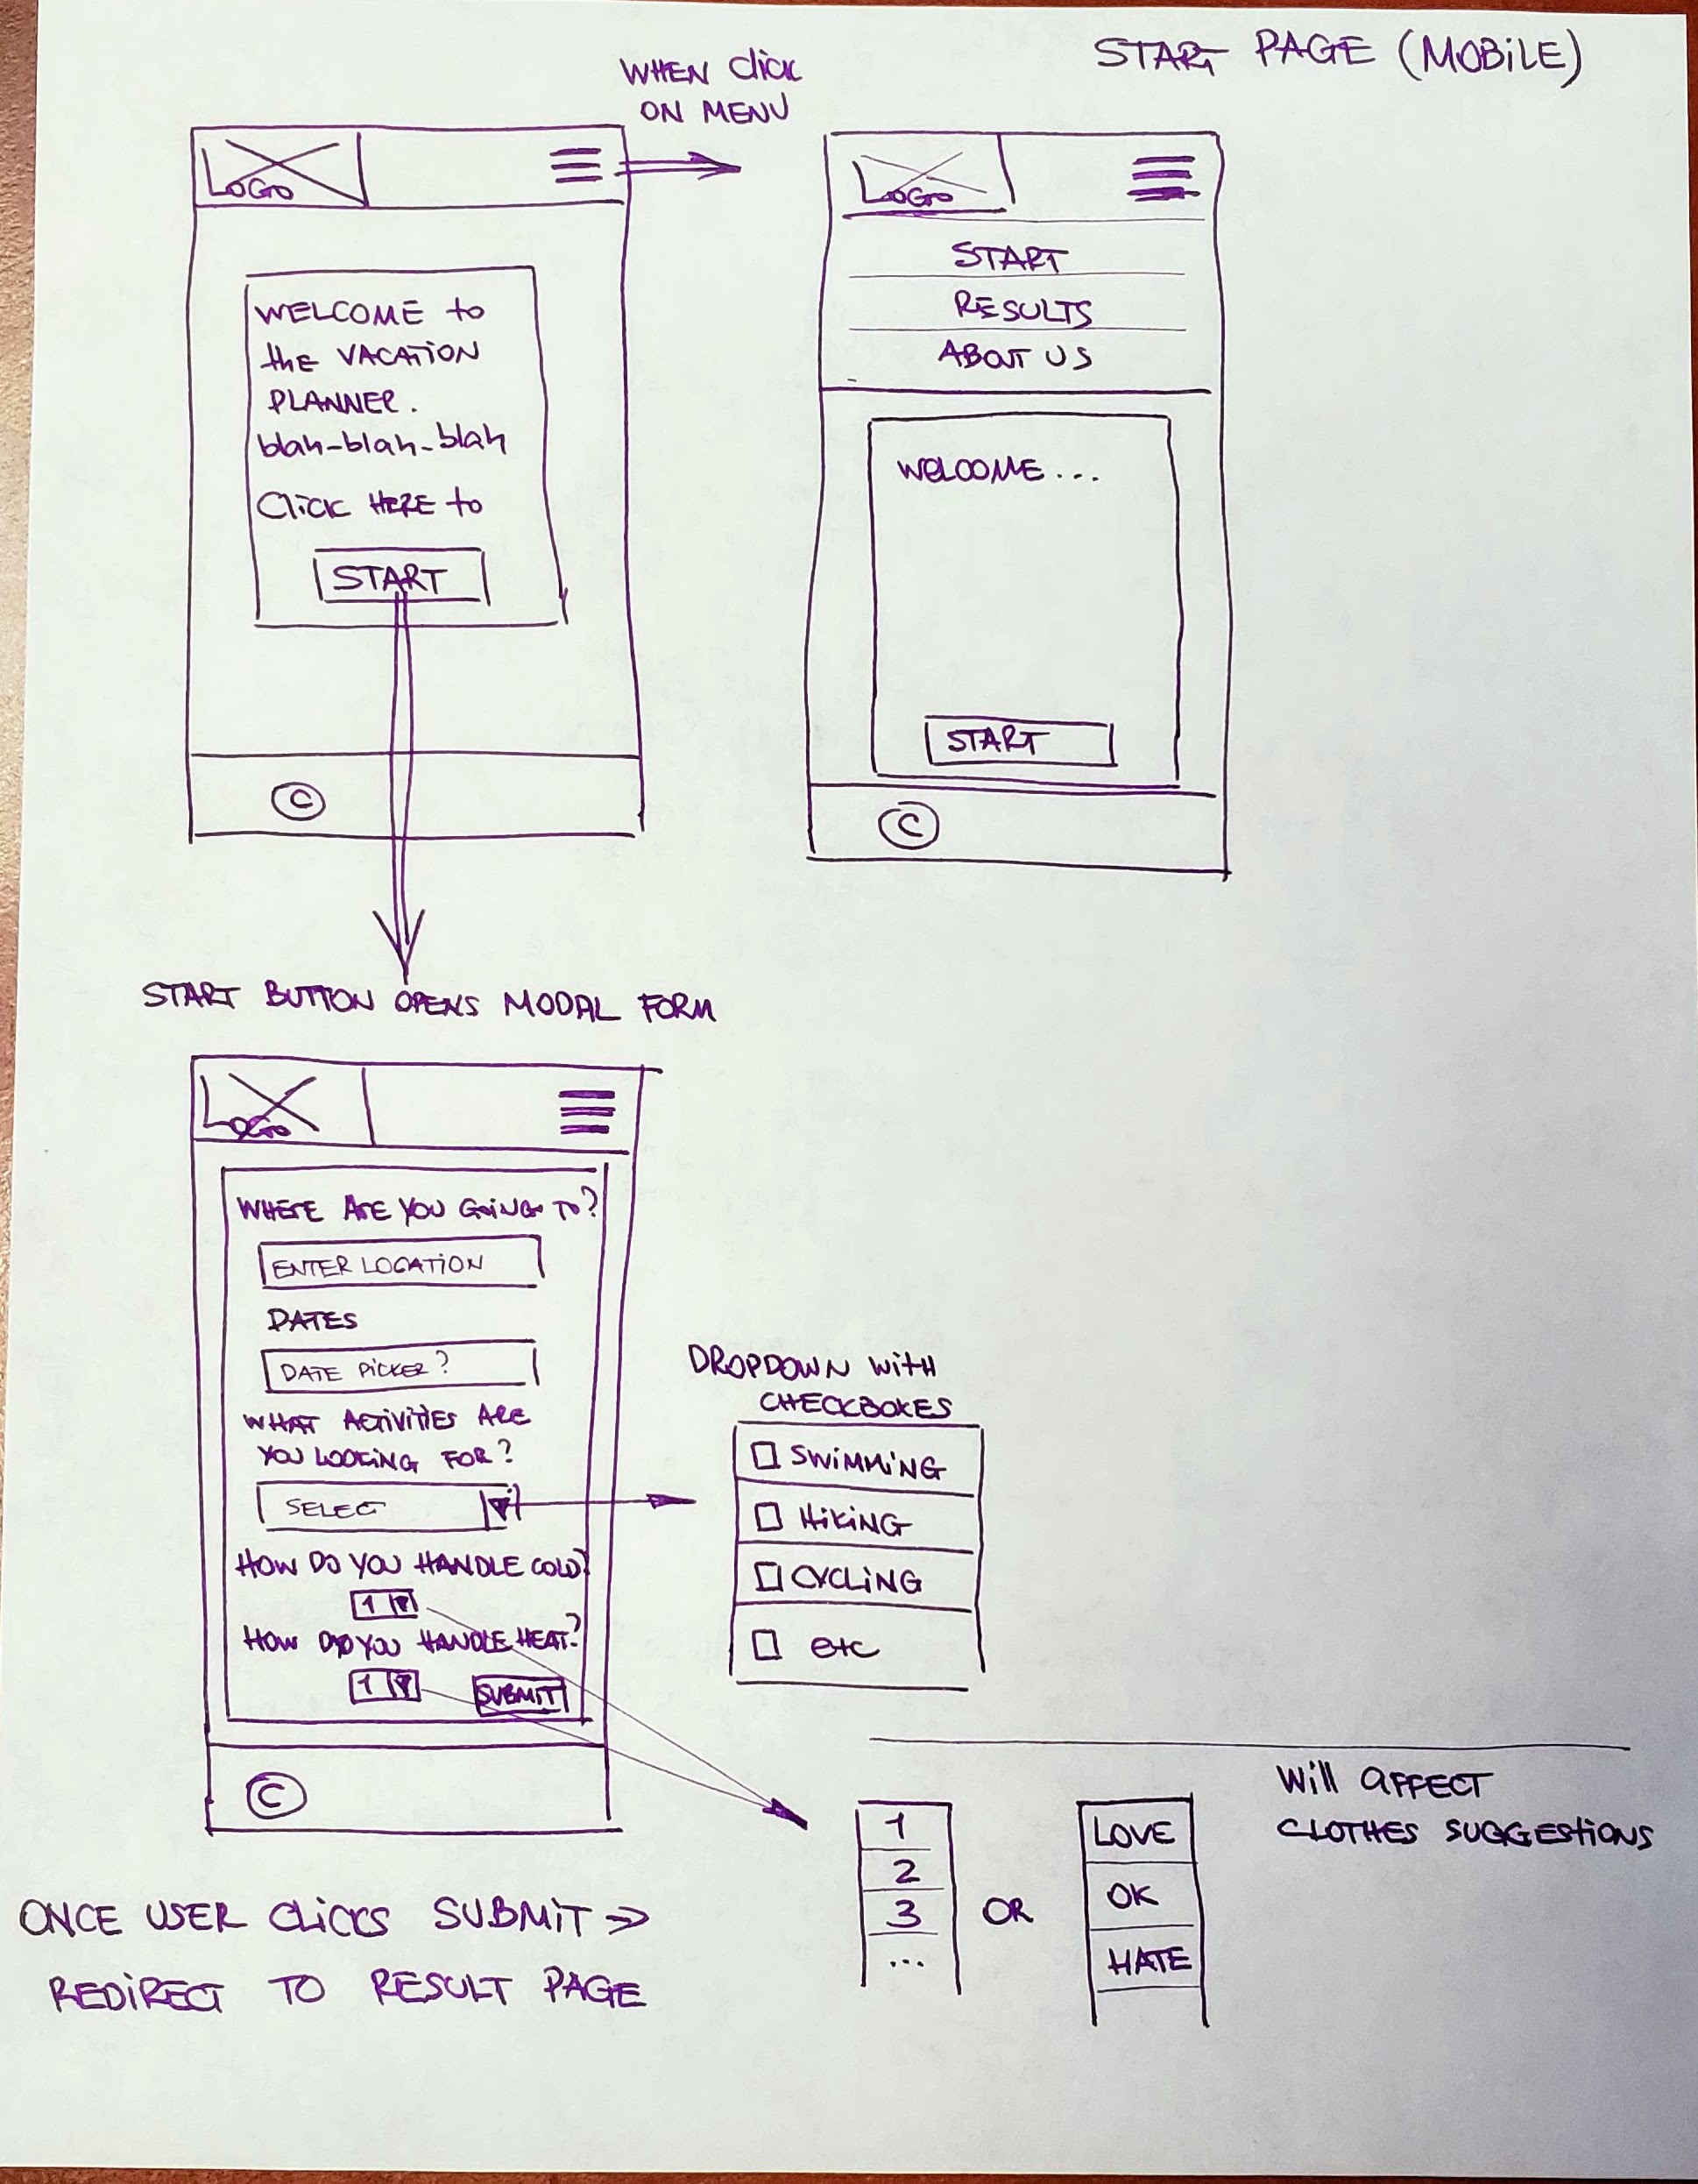 START PAGE (MOBILE)
WHEN CLICK
ON MENU
LOGO
WELCOME to
the VACATION
PLANNER.
blah-blah-blah
CLICK HERE to
START
©
LOGO
START
RESULTS
ABOUT US
WELCOME...
START
©
START BUTTON OPENS MODAL FORM
LOGO
WHERE ARE YOU GOING TO?
ENTER LOCATION
DATES
DATE PICKER?
WHAT ACTIVITIES ARE
YOU LOOKING FOR?
SELECT
HOW DO YOU HANDLE COLD?
1
HOW DO YOU HANDLE HEAT?
1
SUBMIT
©
DROPDOWN WITH
CHECKBOXES
SWIMMING
HIKING
CYCLING
etc
1
2
3
...
OR
LOVE
OK
HATE
Will AFFECT
CLOTHES SUGGESTIONS
ONCE USER CLICKS SUBMIT ⇒
REDIRECT TO RESULT PAGE